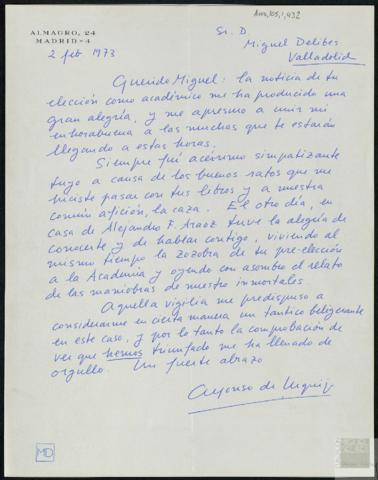 AMA,105,1,432
ALMAGRO, 24
MADRID-4
2 feb 1973
Sr. D.
Miguel Delibes
Valladolid
Querido Miguel: la noticia de tu
elección como académico me ha producido una
gran alegría, y me apresuro a unir mi
enhorabuena a las muchas que te estarán
llegando a estas horas.
Siempre fuí acerrimo simpatizante
tuyo a causa de los buenos ratos que me
hiciste pasar con tus libros y a nuestra
común afición, la caza. El otro día, en
casa de Alejandro F. Araoz tuve la alegría de
conocerte y de hablar contigo, viviendo al
mismo tiempo la zozobra de tu pre-elección
a la Academia y oyendo con asombro el relato
de las maniobras de nuestros inmortales.
Aquella vigilia me predispuso a
considerarme en cierta manera un tantico beligerante
en este caso, y por lo tanto la comprobación de
ver que hemos triunfado me ha llenado de
orgullo. Un fuerte abrazo
Alfonso de Urquijo
MD